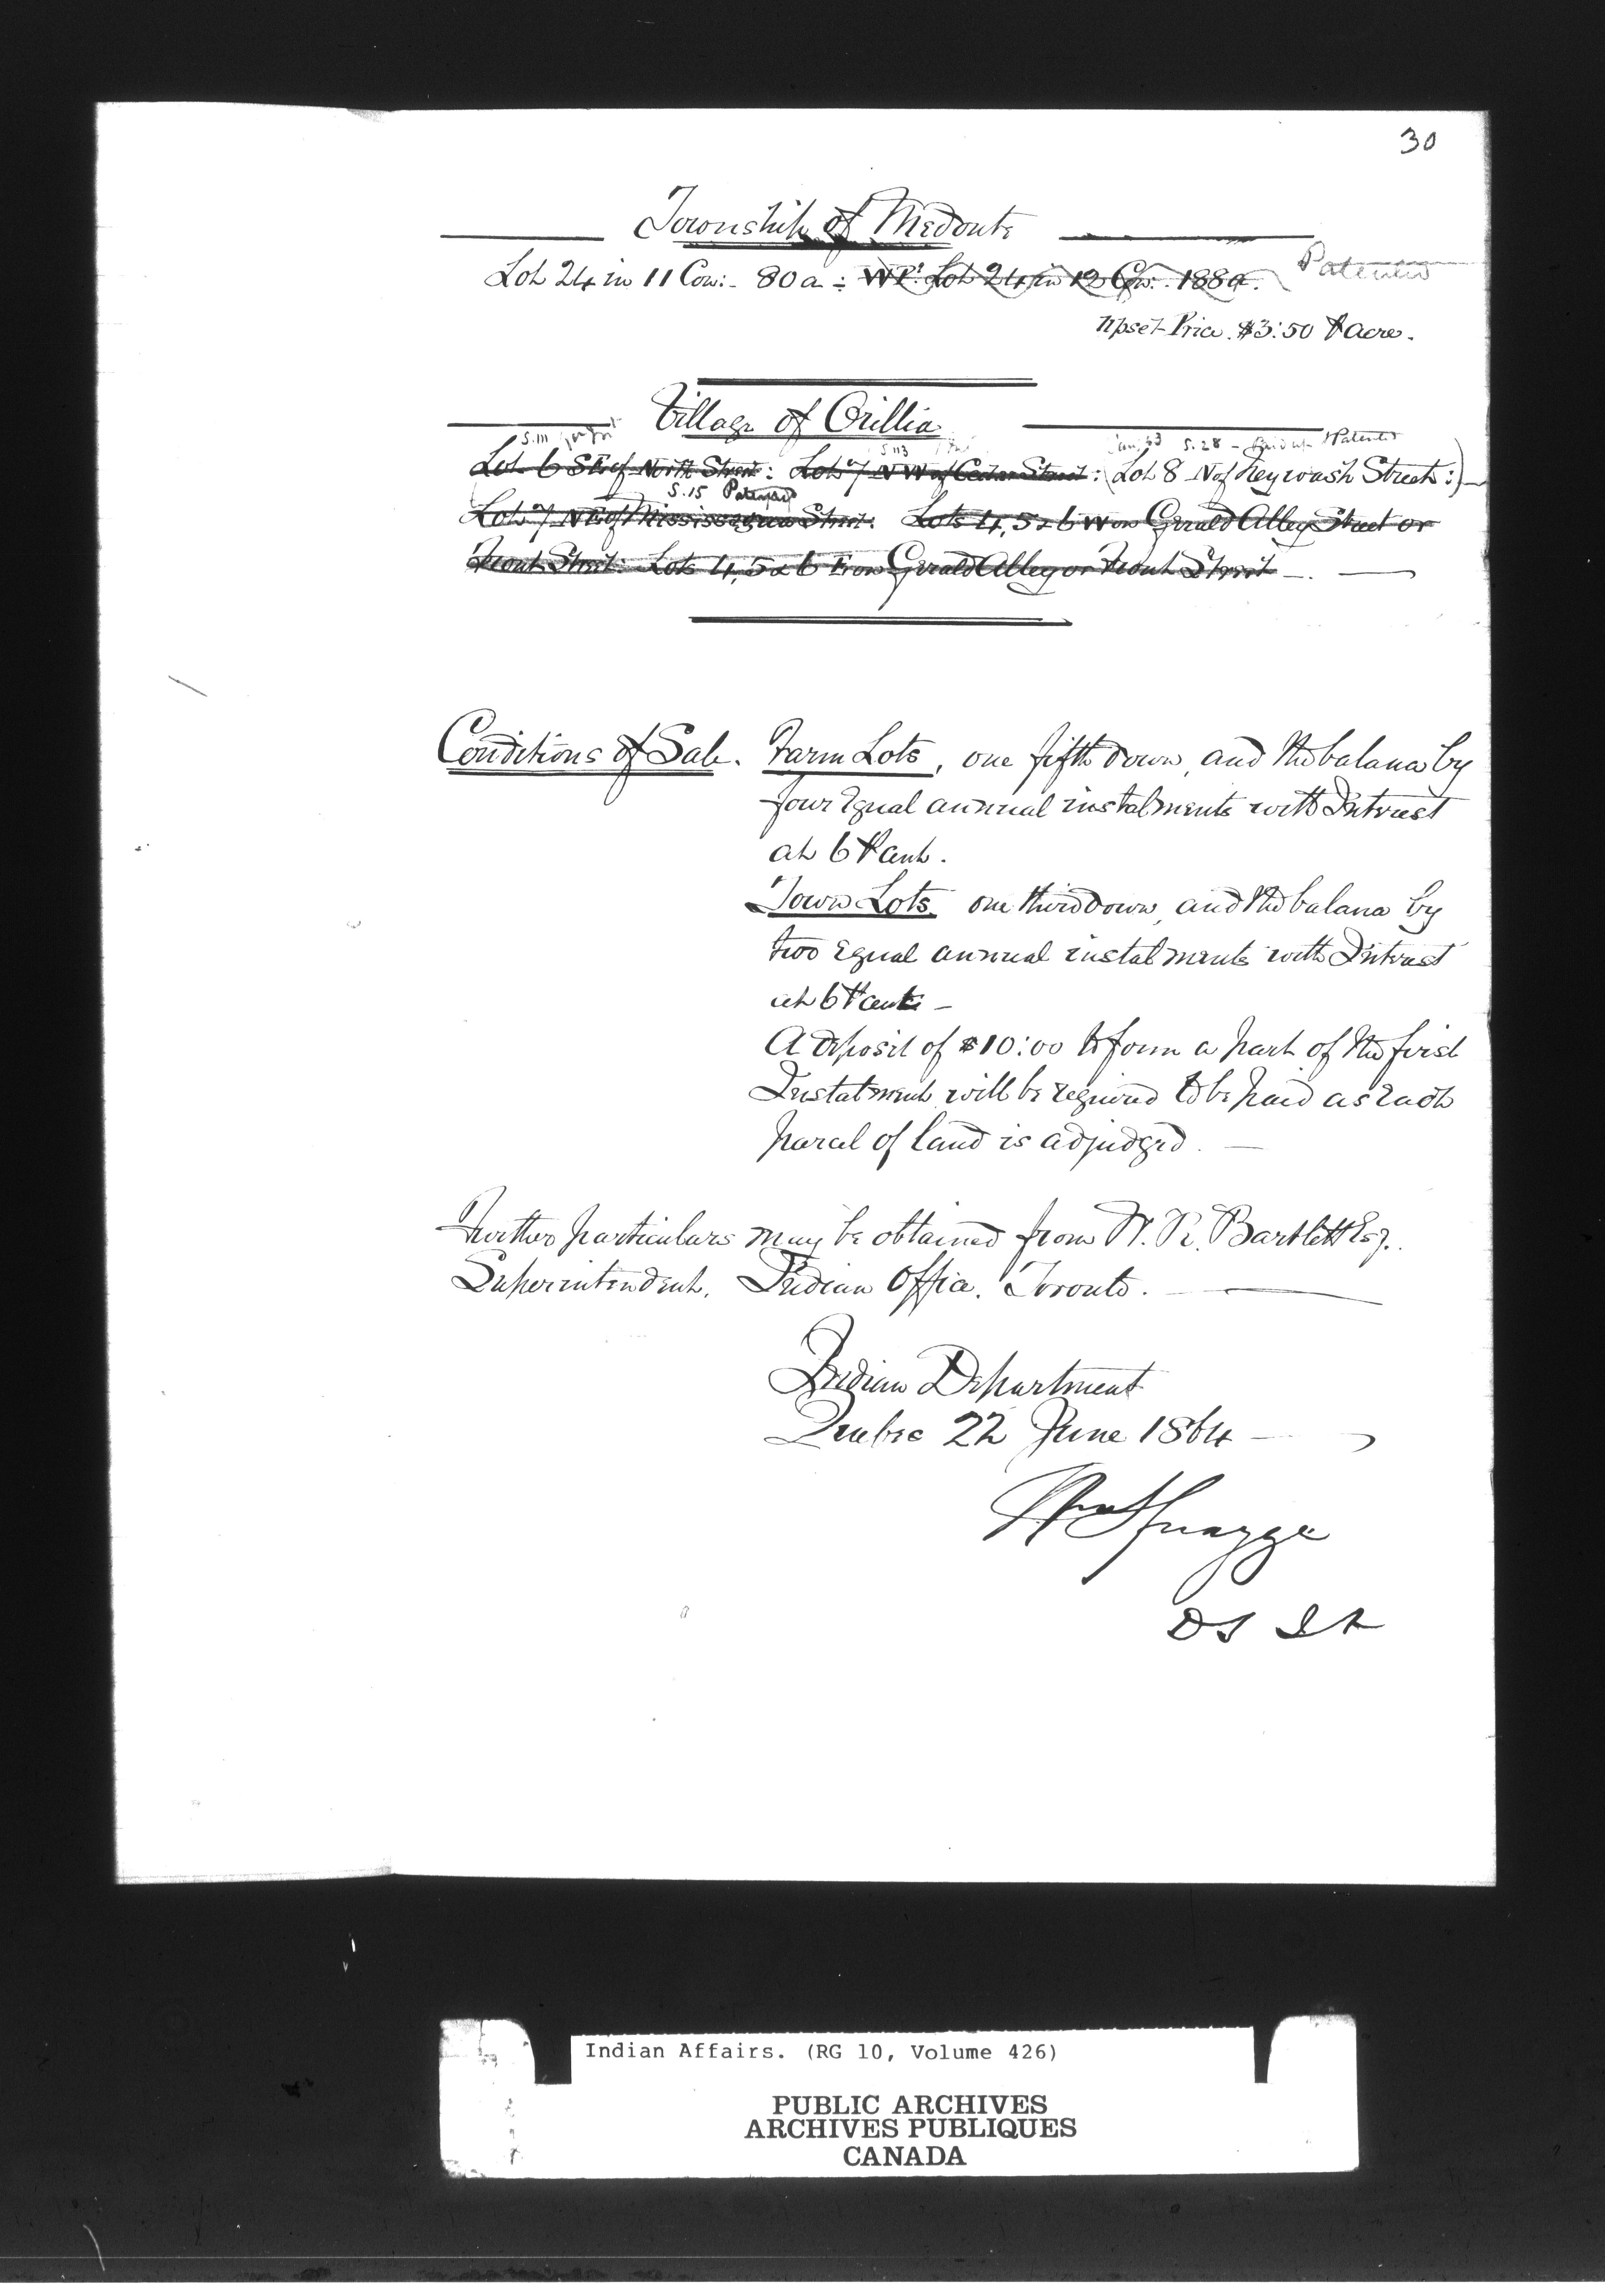 30
Township of Medonte
Lot 24 in 11 Con: - 80 a - Wpt Lot 24 in 12 Con: 188 a. Patented
Upset Price. $3:50 ⅌ acre.
Village of Orillia
S. 111 S 113 S. 28 - Patented
Lot 6 SE of North Street: Lot 7 NW of Cedar Street: (Lot 8 N of Neywash Street:) -
S. 15 Patented
Lot 7 NE of Mississagua Street: Lots 4, 5 & 6 W on Gerald Alley Street or
Front Street: Lots 4, 5 & 6 E on Gerald Alley or Front Street -.
Conditions of Sale. Farm Lots, one fifth down, and the balance by
four equal annual instalments with Interest
at 6 ⅌ cent.
Town Lots. one third down, and the balance by
two equal annual instalments with Interest
at 6 ⅌ cent -
A deposit of $10:00 to form a part of the first
Instalment will be required to be paid as each
parcel of land is adjudged. -
Further particulars may be obtained from W. R. Bartlett Esq.
Superintendent, Indian Office. Toronto.
Indian Department
Quebec 22 June 1864 -
Wm Spragge
DS IA
Indian Affairs. (RG 10, Volume 426)
PUBLIC ARCHIVES
ARCHIVES PUBLIQUES
CANADA